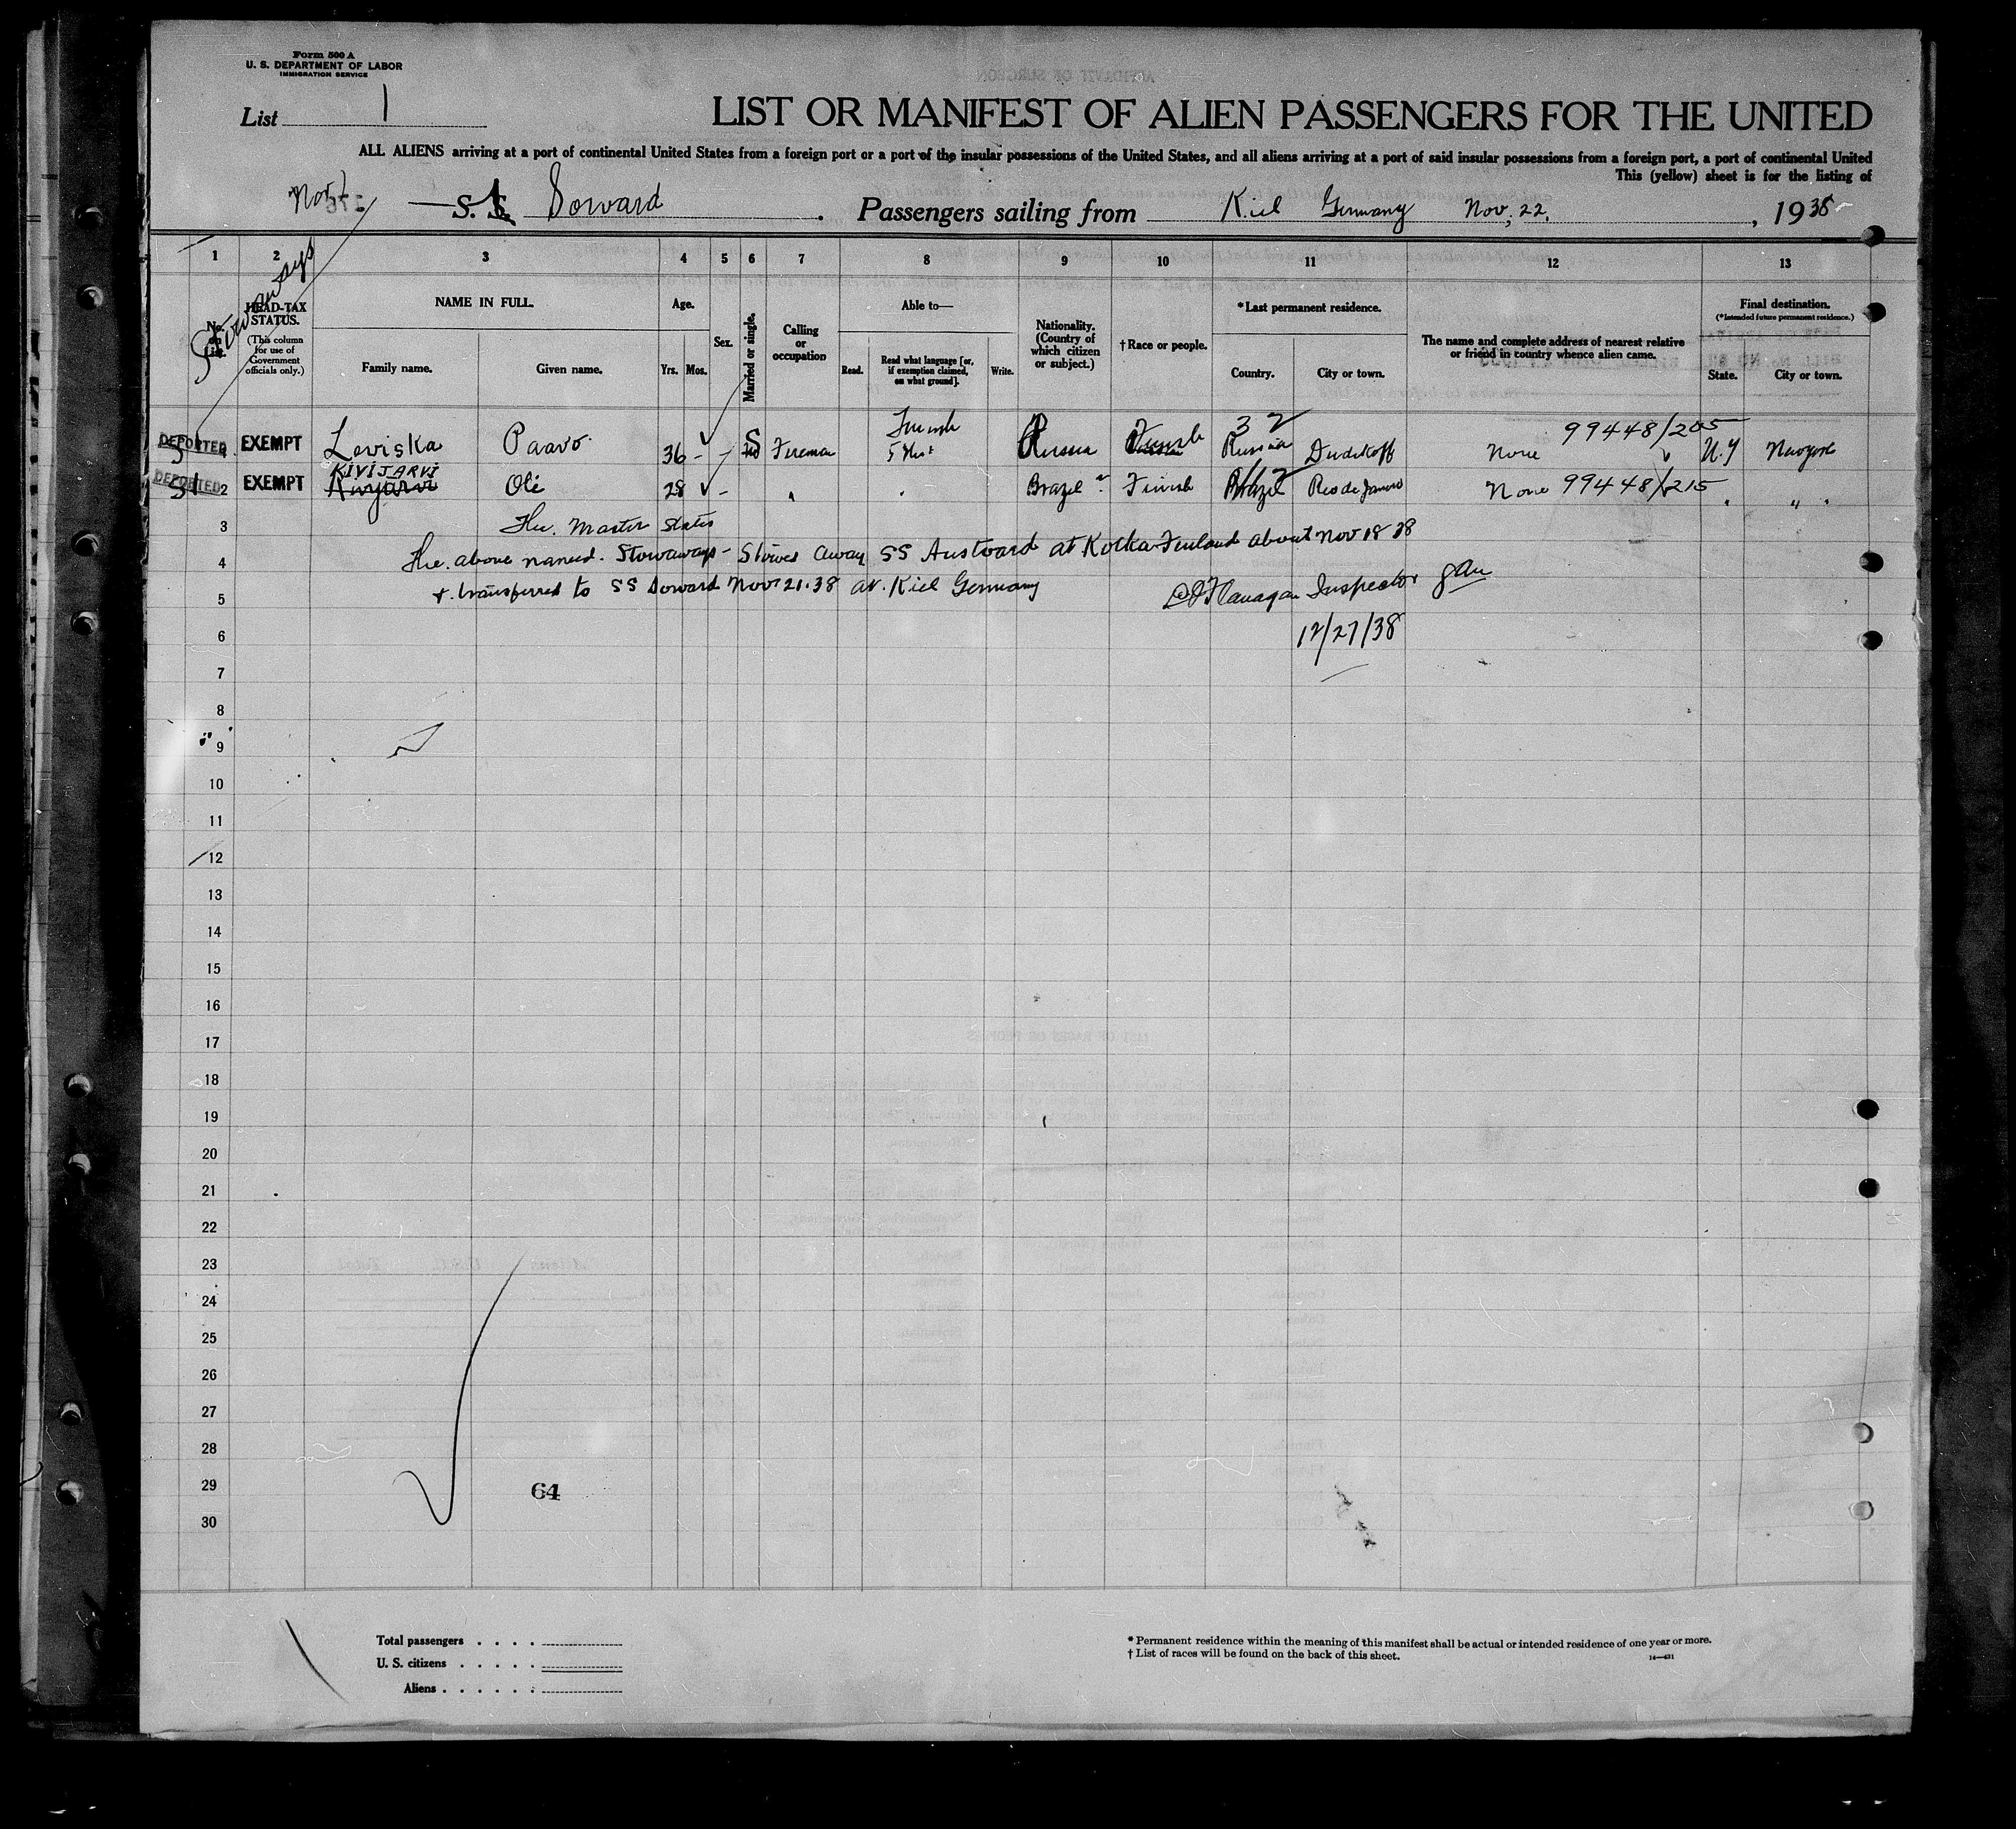 Form 500 A
U. S. DEPARTMENT OF LABOR
IMMIGRATION SERVICE
List 1
LIST OR MANIFEST OF ALIEN PASSENGERS FOR THE UNITED
ALL ALIENS arriving at a port of continental United States from a foreign port or a port of the insular possessions of the United States, and all aliens arriving at a port of said insular possessions from a foreign port, a port of continental United
This (yellow) sheet is for the listing of
S. S. Sorvard . Passengers sailing from Kiel Germany Nov, 22. , 1938
Stowaways
1 2 3 4 5 6 7 8 9 10 11 12 13
No. on List.
HEAD-TAX STATUS.
(This column for use of Government officials only.)
NAME IN FULL.
Family name. Given name.
Age.
Yrs. Mos.
Sex.
Married or single.
Calling or occupation
Able to—
Read. Read what language [or, if exemption claimed, on what ground]. Write.
Nationality. (Country of which citizen or subject.)
† Race or people.
*Last permanent residence.
Country. City or town.
The name and complete address of nearest relative or friend in country whence alien came.
Final destination.
(*Intended future permanent residence.)
State. City or town.
DEPORTED 1 EXEMPT Leviska Paavo 36 - S Fireman Finnish Russia Finnish Russia None 99448/205 N.Y Newyork
DEPORTED 2 EXEMPT KIVIJARVI Oli 28 - " " Brazil Finish Brazil Rio de Janeiro None 99448/215 " "
3 The Master States
4 The above named Stowaways - Stowed away SS Austvard at Kotka Finland about Nov 18 38
5 + transferred to SS Sorvard Nov 21.38 at Kiel Germany Flanagan Inspector
12/27/38
6
7
8
9
10
11
12
13
14
15
16
17
18
19
20
21
22
23
24
25
26
27
28
29
64
30
Total passengers . . . .
U. S. citizens . . . . .
Aliens . . . . . .
* Permanent residence within the meaning of this manifest shall be actual or intended residence of one year or more.
† List of races will be found on the back of this sheet.
14—431